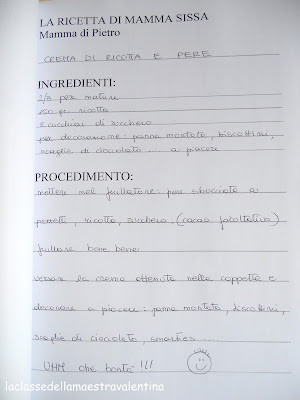 LA RICETTA DI MAMMA SISSA
Mamma di Pietro
CREMA DI RICOTTA E PERE
INGREDIENTI:
2/3 pere mature
250 gr. ricotta
2 cucchiai di zucchero
per decorazione: panna montata, biscottini,
scaglie di cioccolato... a piacere
PROCEDIMENTO:
mettere nel frullatore: pere sbucciate a
pezzetti, ricotta, zucchero, (cacao facoltativo)
frullare bene bene
versare la crema ottenuta nelle coppette e
decorare a piacere: panna montata, biscottini,
scaglie di cioccolato, smarties...
UHM che bontà!!!
laclassedellamaestravalentina